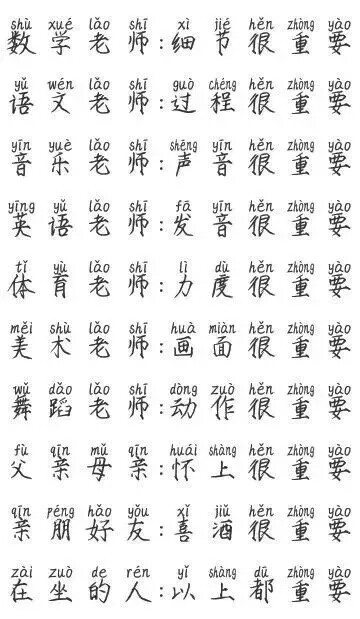 shù xué lǎo shī xì jié hěn zhòng yào
数学老师:细节很重要
yǔ wén lǎo shī guò chéng hěn zhòng yào
语文老师:过程很重要
yīn yuè lǎo shī shēng yīn hěn zhòng yào
音乐老师:声音很重要
yīng yǔ lǎo shī fā yīn hěn zhòng yào
英语老师:发音很重要
tǐ yù lǎo shī lì dù hěn zhòng yào
体育老师:力度很重要
měi shù lǎo shī huà miàn hěn zhòng yào
美术老师:画面很重要
wǔ dǎo lǎo shī dòng zuò hěn zhòng yào
舞蹈老师:动作很重要
fù qīn mǔ qīn huái shàng hěn zhòng yào
父亲母亲:怀上很重要
qīn péng hǎo yǒu xǐ jiǔ hěn zhòng yào
亲朋好友:喜酒很重要
zài zuò de rén yǐ shàng dū zhòng yào
在坐的人:以上都重要